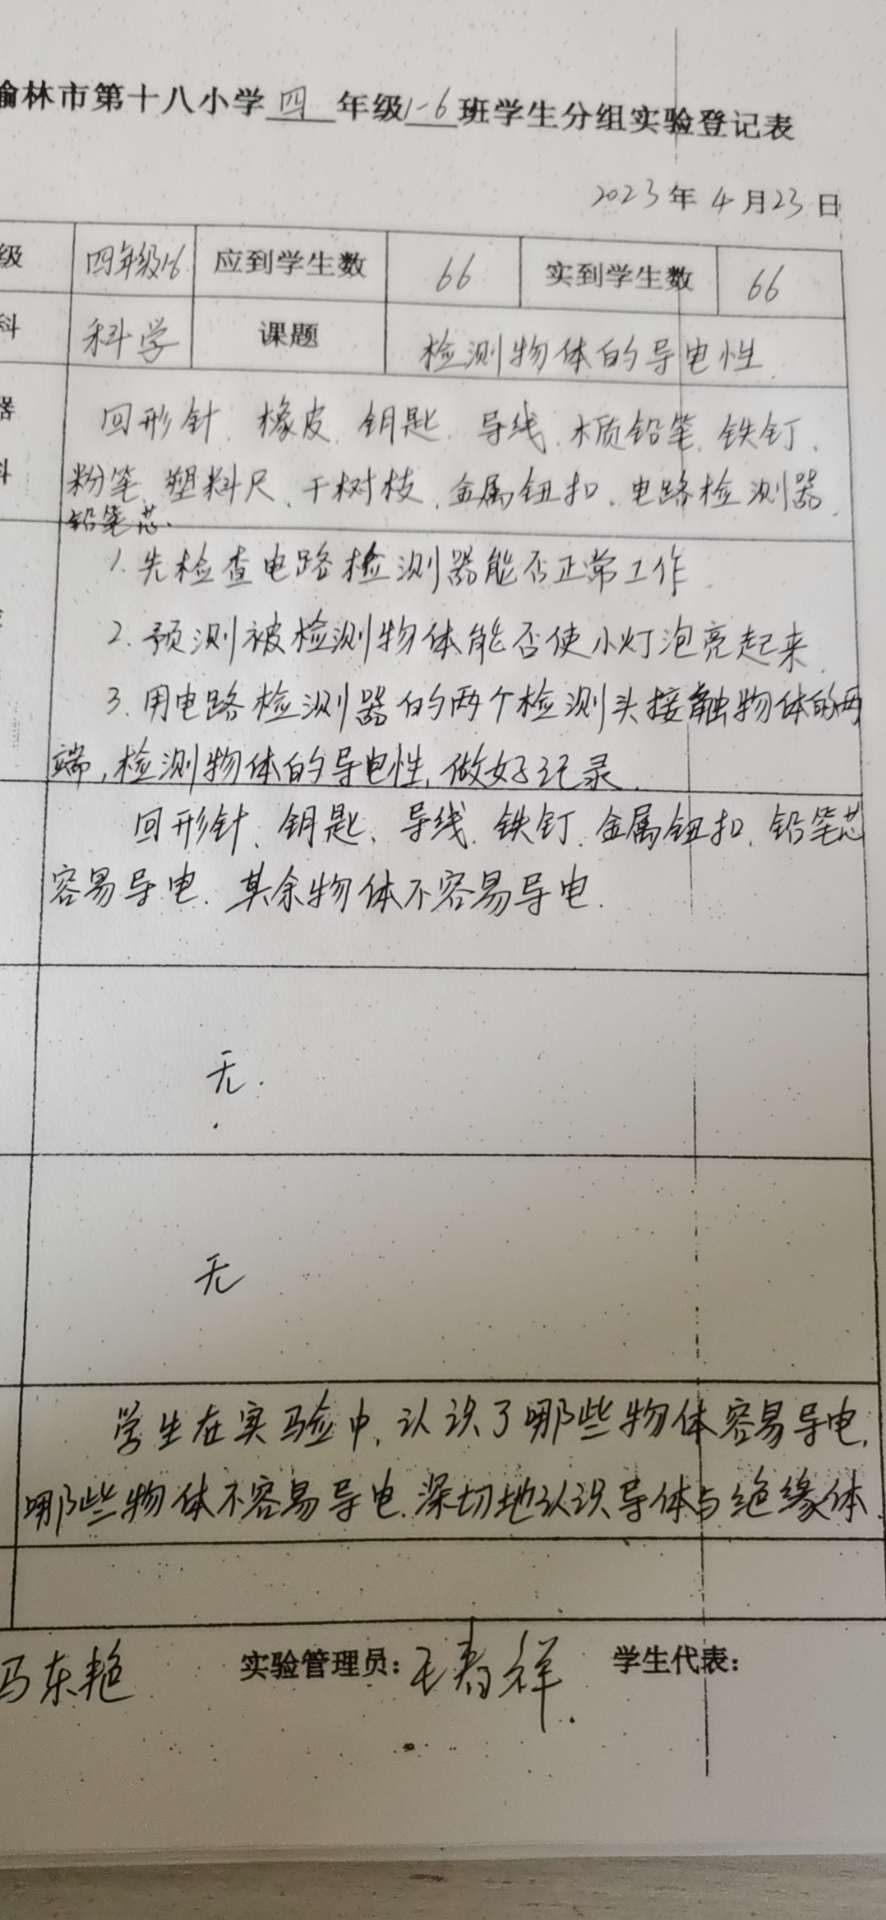 榆林市第十八小学 四 年级1-6班学生分组实验登记表
2023年4月23日
级 四年级1-6 应到学生数 66 实到学生数 66
科 科学 课题 检测物体的导电性
器 回形针、橡皮、钥匙、导线、木质铅笔、铁钉、
料 粉笔、塑料尺、干树枝、金属钮扣、电路检测器、
铅笔芯.
1.先检查电路检测器能否正常工作
2.预测被检测物体能否使小灯泡亮起来
3.用电路检测器的两个检测头接触物体的两
端,检测物体的导电性,做好记录.
回形针、钥匙、导线、铁钉、金属钮扣、铅笔芯
容易导电.其余物体不容易导电.
无.
无
学生在实验中,认识了哪些物体容易导电,
哪些物体不容易导电.深切地认识导体与绝缘体.
冯东艳 实验管理员: 祥. 学生代表: